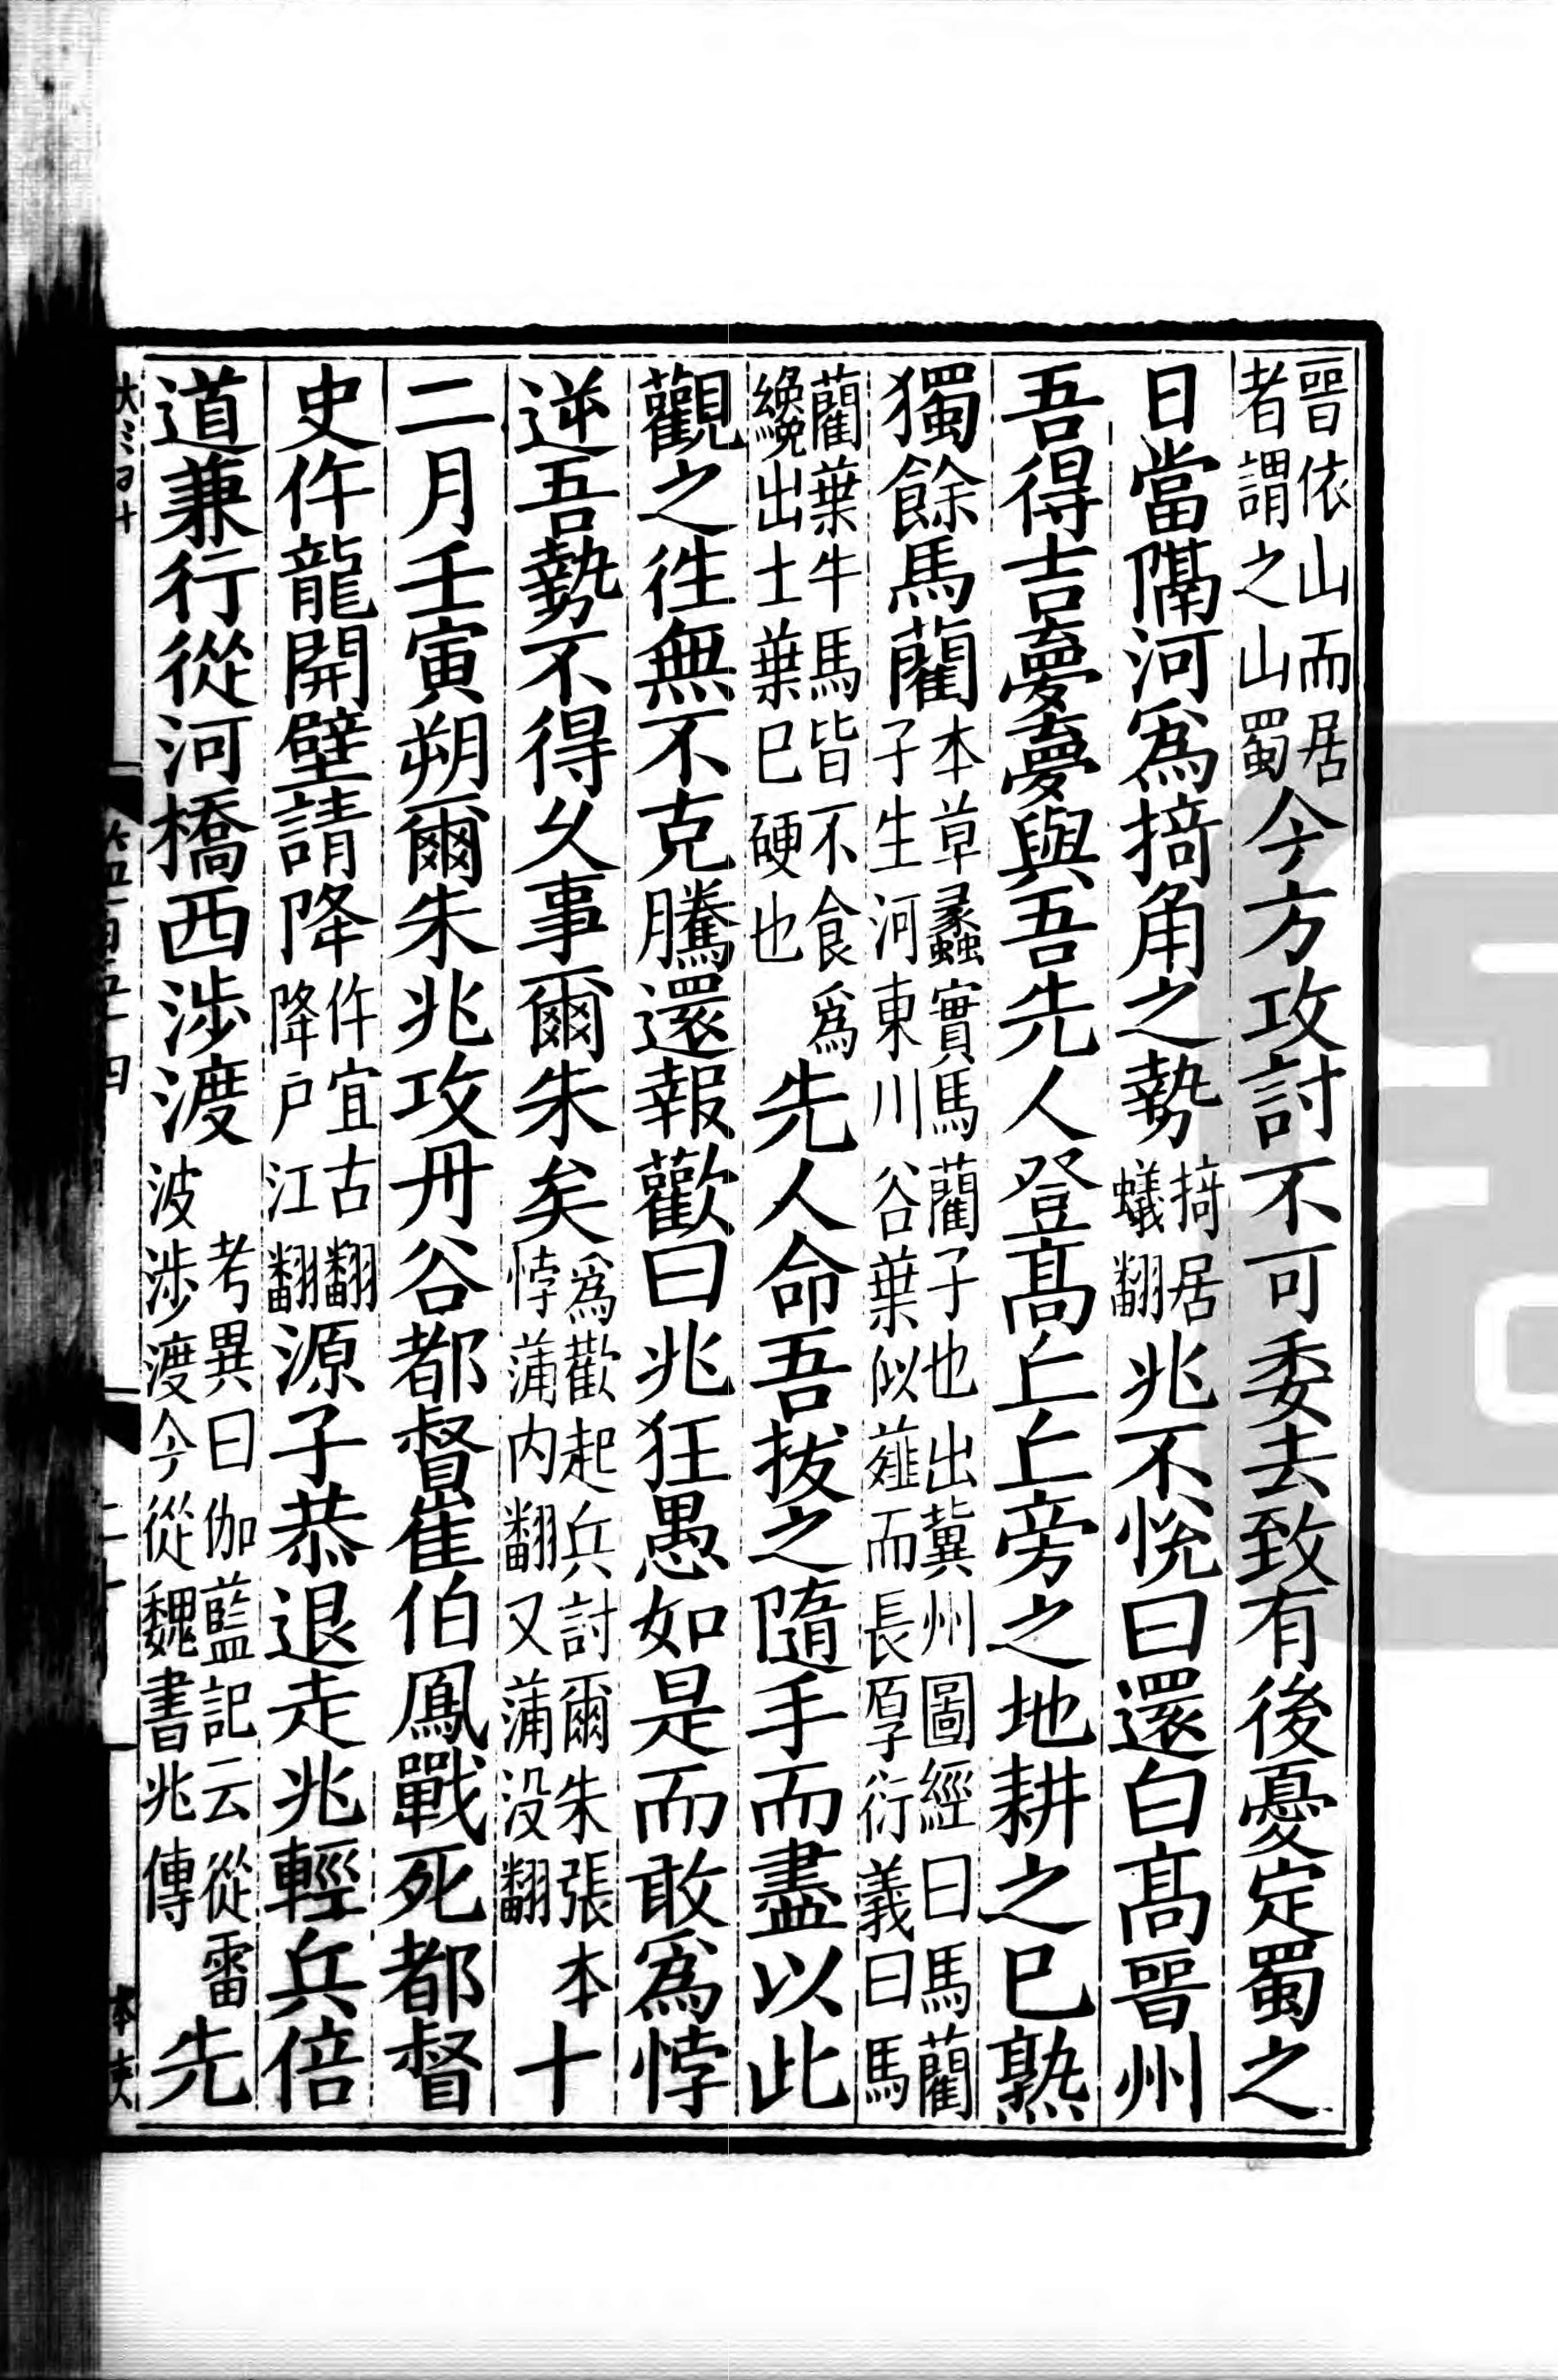 晉依山而居者謂之山蜀今方攻討不可委去致有後憂定蜀之
日當隔河爲掎角之勢掎居蟻翻兆不悅曰還白高晉州
吾得吉夢夢與吾先人登高丘丘旁之地耕之已熟
獨餘馬藺本草蠡實馬藺子也出冀州圖經曰馬藺子生河東川谷葉似薤而長厚衍義曰馬
藺葉牛馬皆不食爲纔出土葉已硬也先人命吾拔之隨手而盡以此
觀之往無不克騰還報歡曰兆狂愚如是而敢爲悖
逆吾勢不得久事爾朱矣爲歡起兵討爾朱張本悖蒲内翻又蒲没翻十
二月壬寅朔爾朱兆攻丹谷都督崔伯鳳戰死都督
史仵龍開壁請降仵宜古翻降户江翻源子恭退走兆輕兵倍
道兼行從河橋西涉渡考異曰伽藍記云從雷波涉渡今從魏書兆傳先